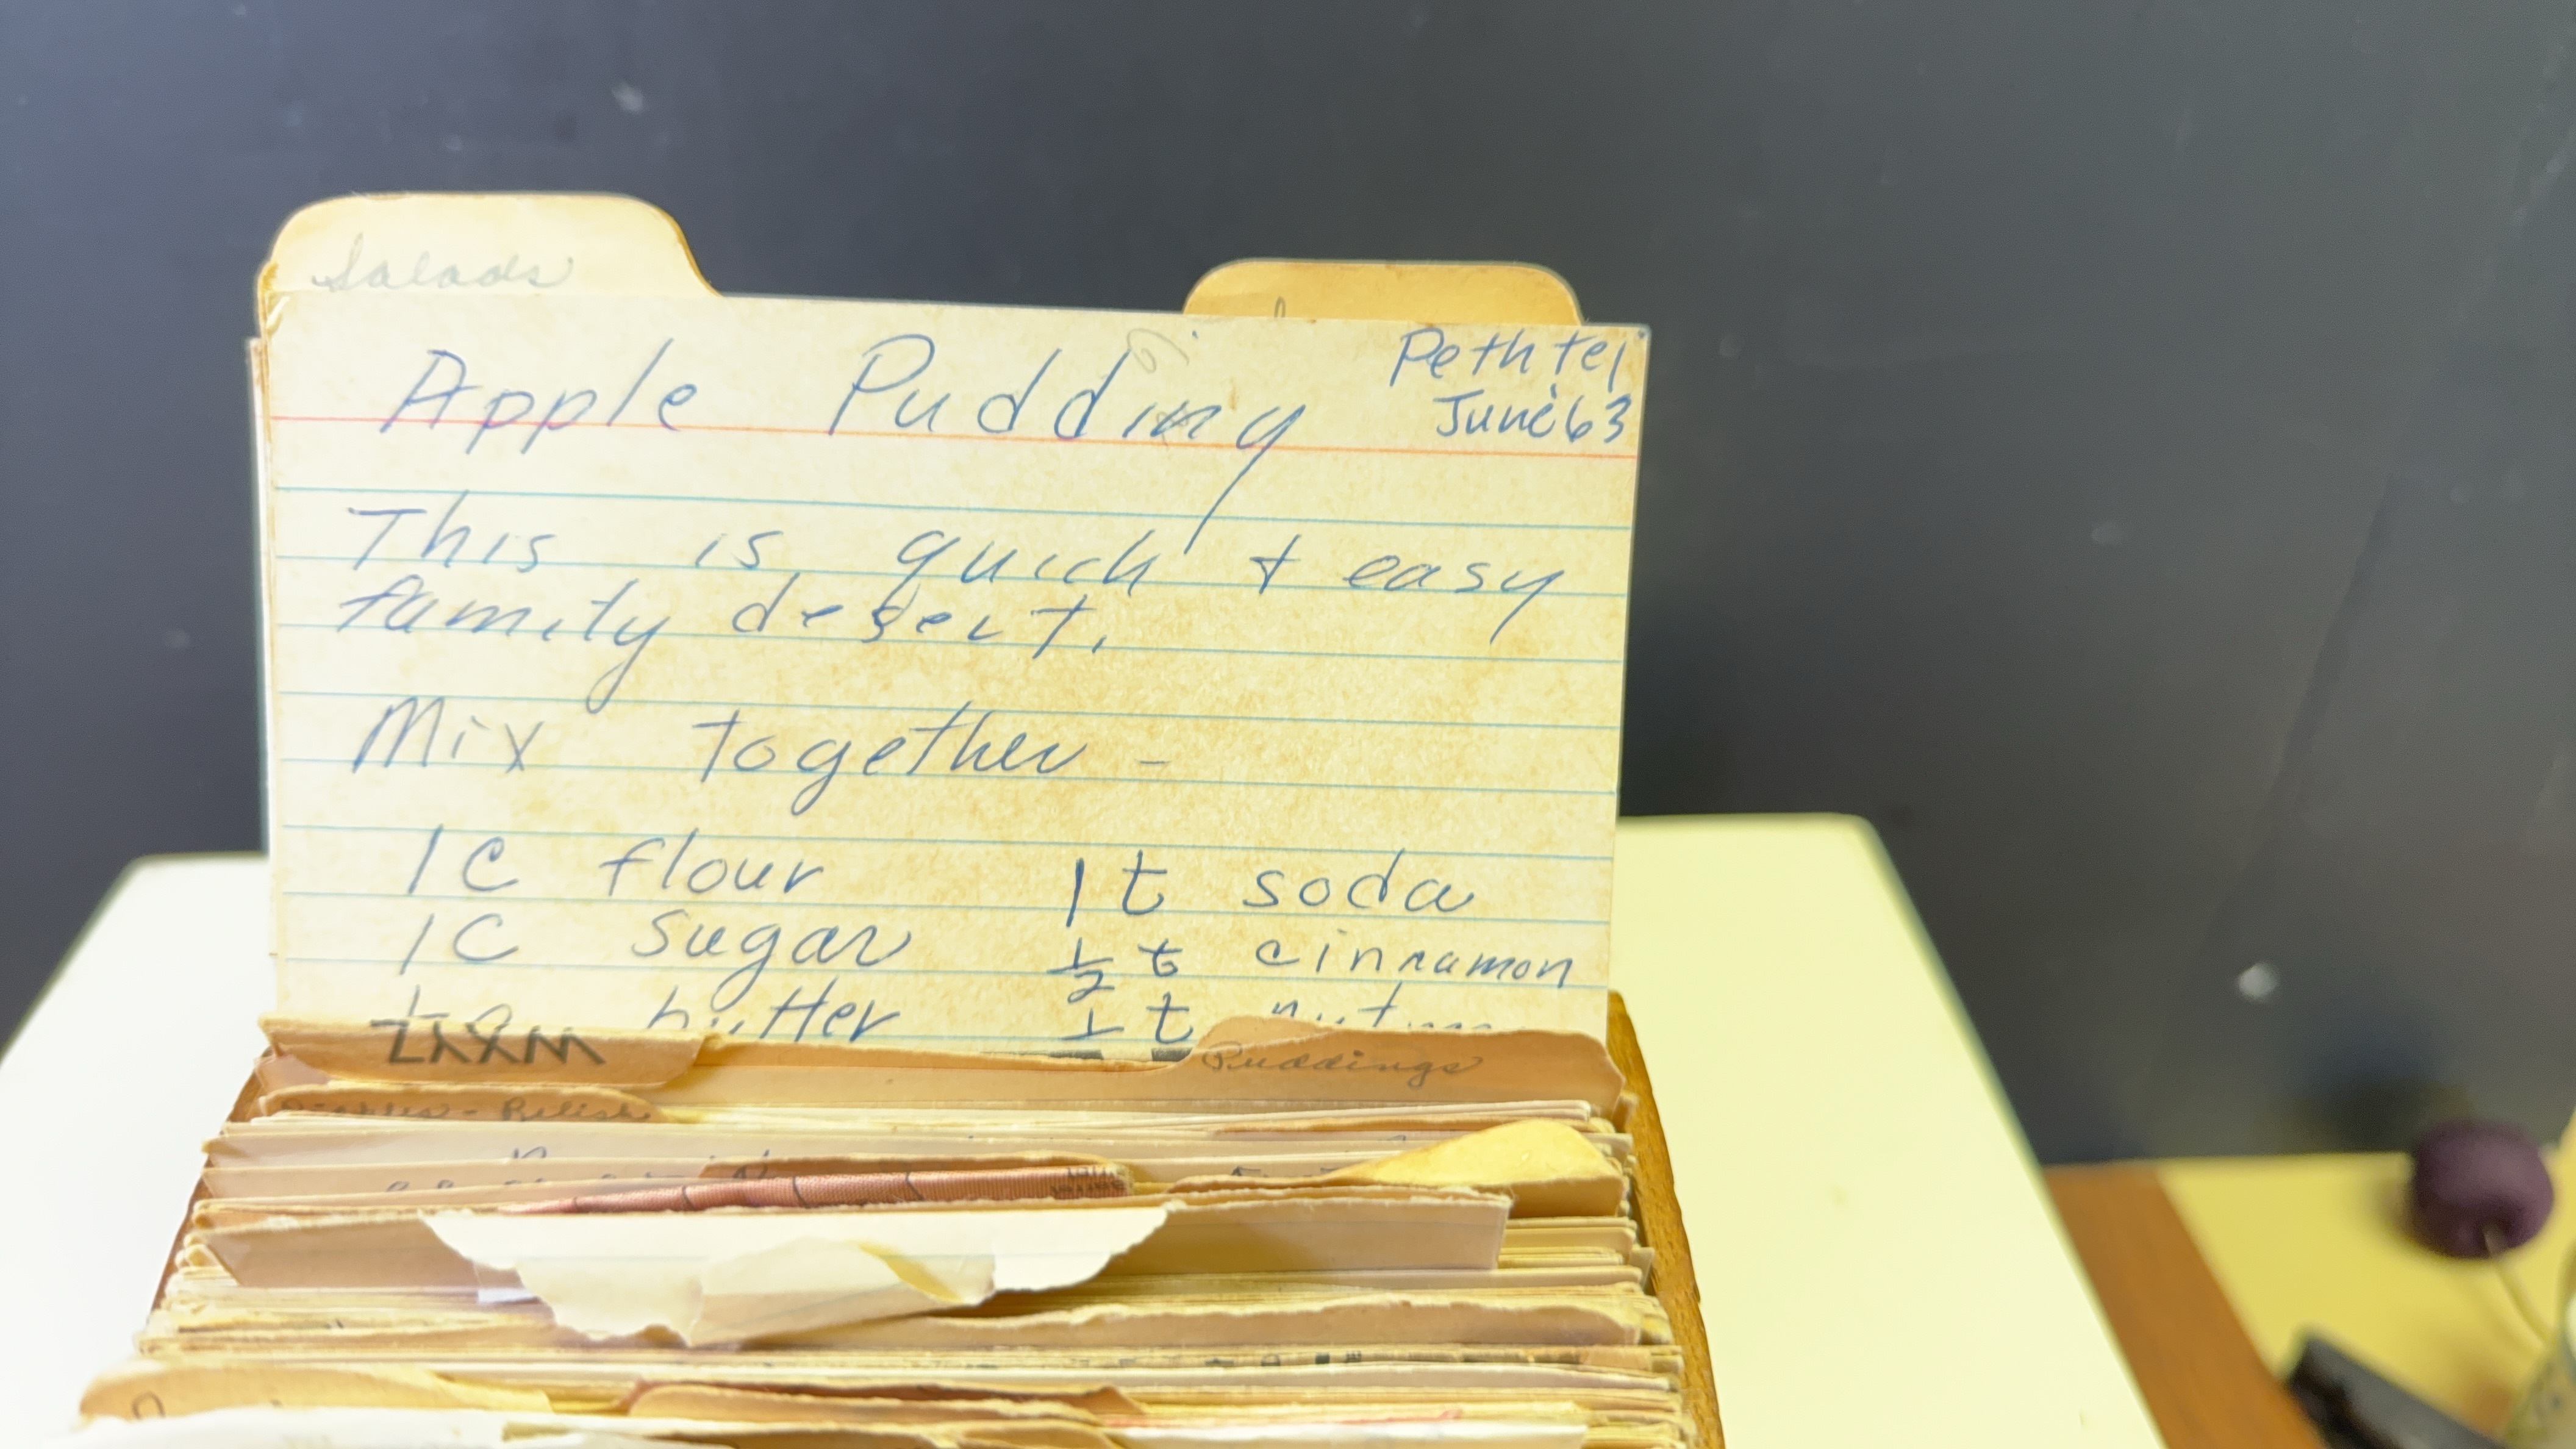 Salads
Apple Pudding
Pethtel
June 63
This is quick + easy
family desert.
Mix together -
1 C flour 1 t soda
1 C sugar 1/2 t cinnamon
butter t
WXYZ
Puddings
Relish